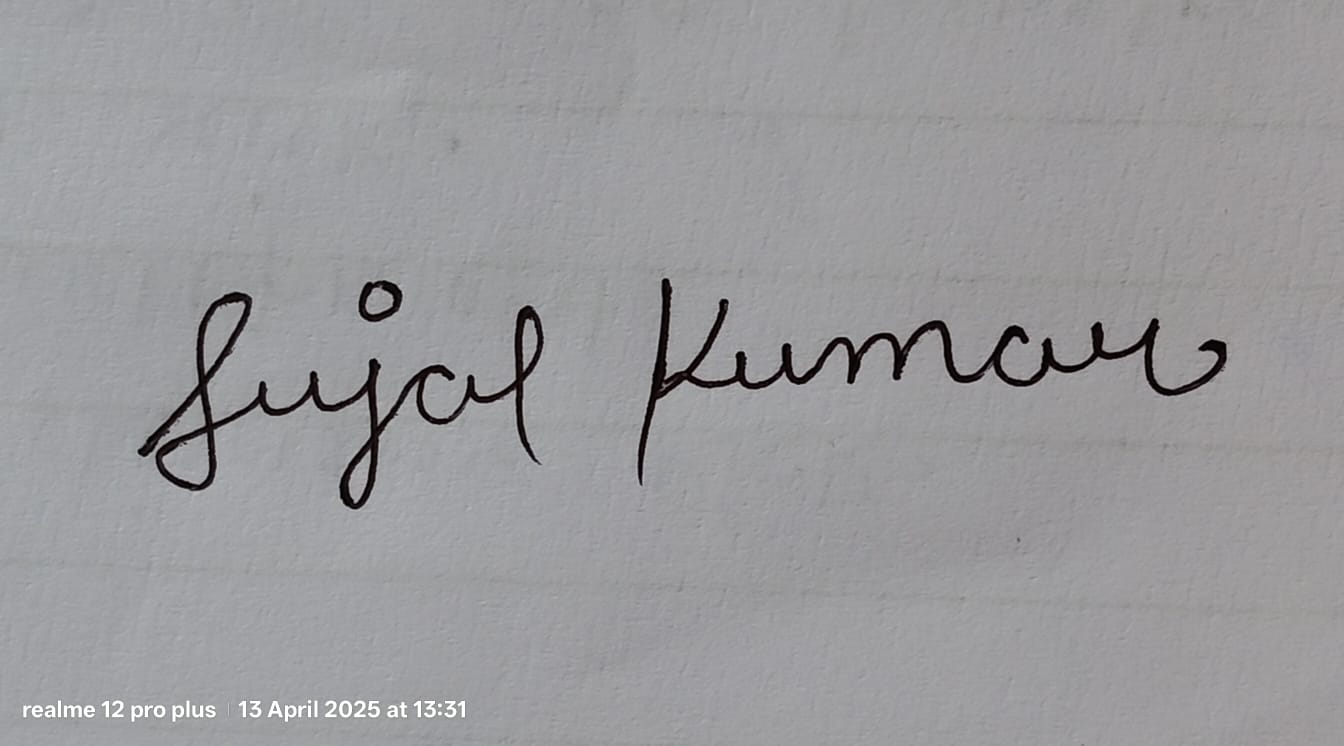 Sujal Kumar
realme 12 pro plus | 13 April 2025 at 13:31